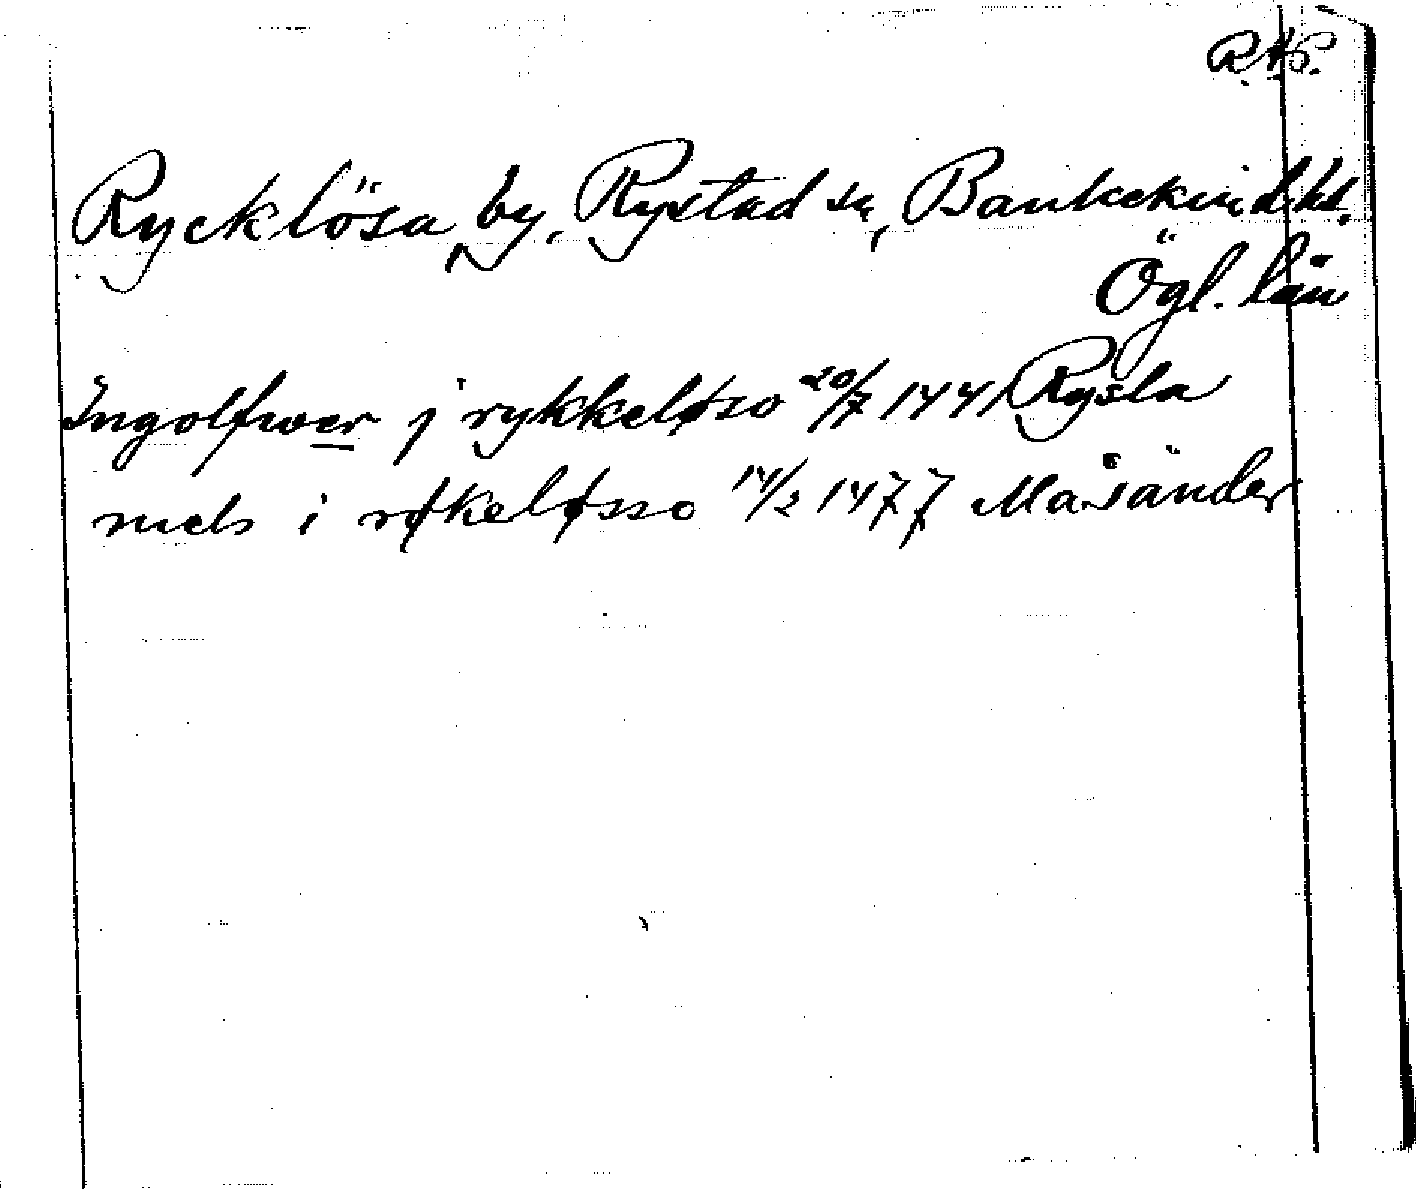 R.A.P.
Rycklösa, by, Rystad sn, Bankekind hd.
Ögl. län
Ingolfwer j rykkeløso 20/7 1441 Rysla
niels i røkeløsso 14/2 1477 Måsänder